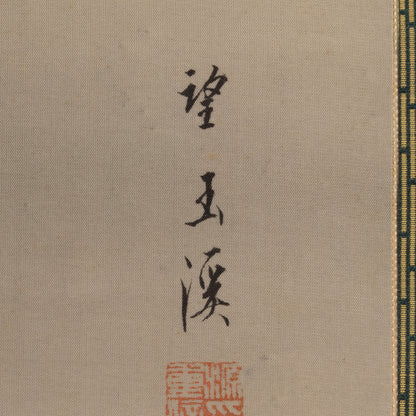 望玉溪